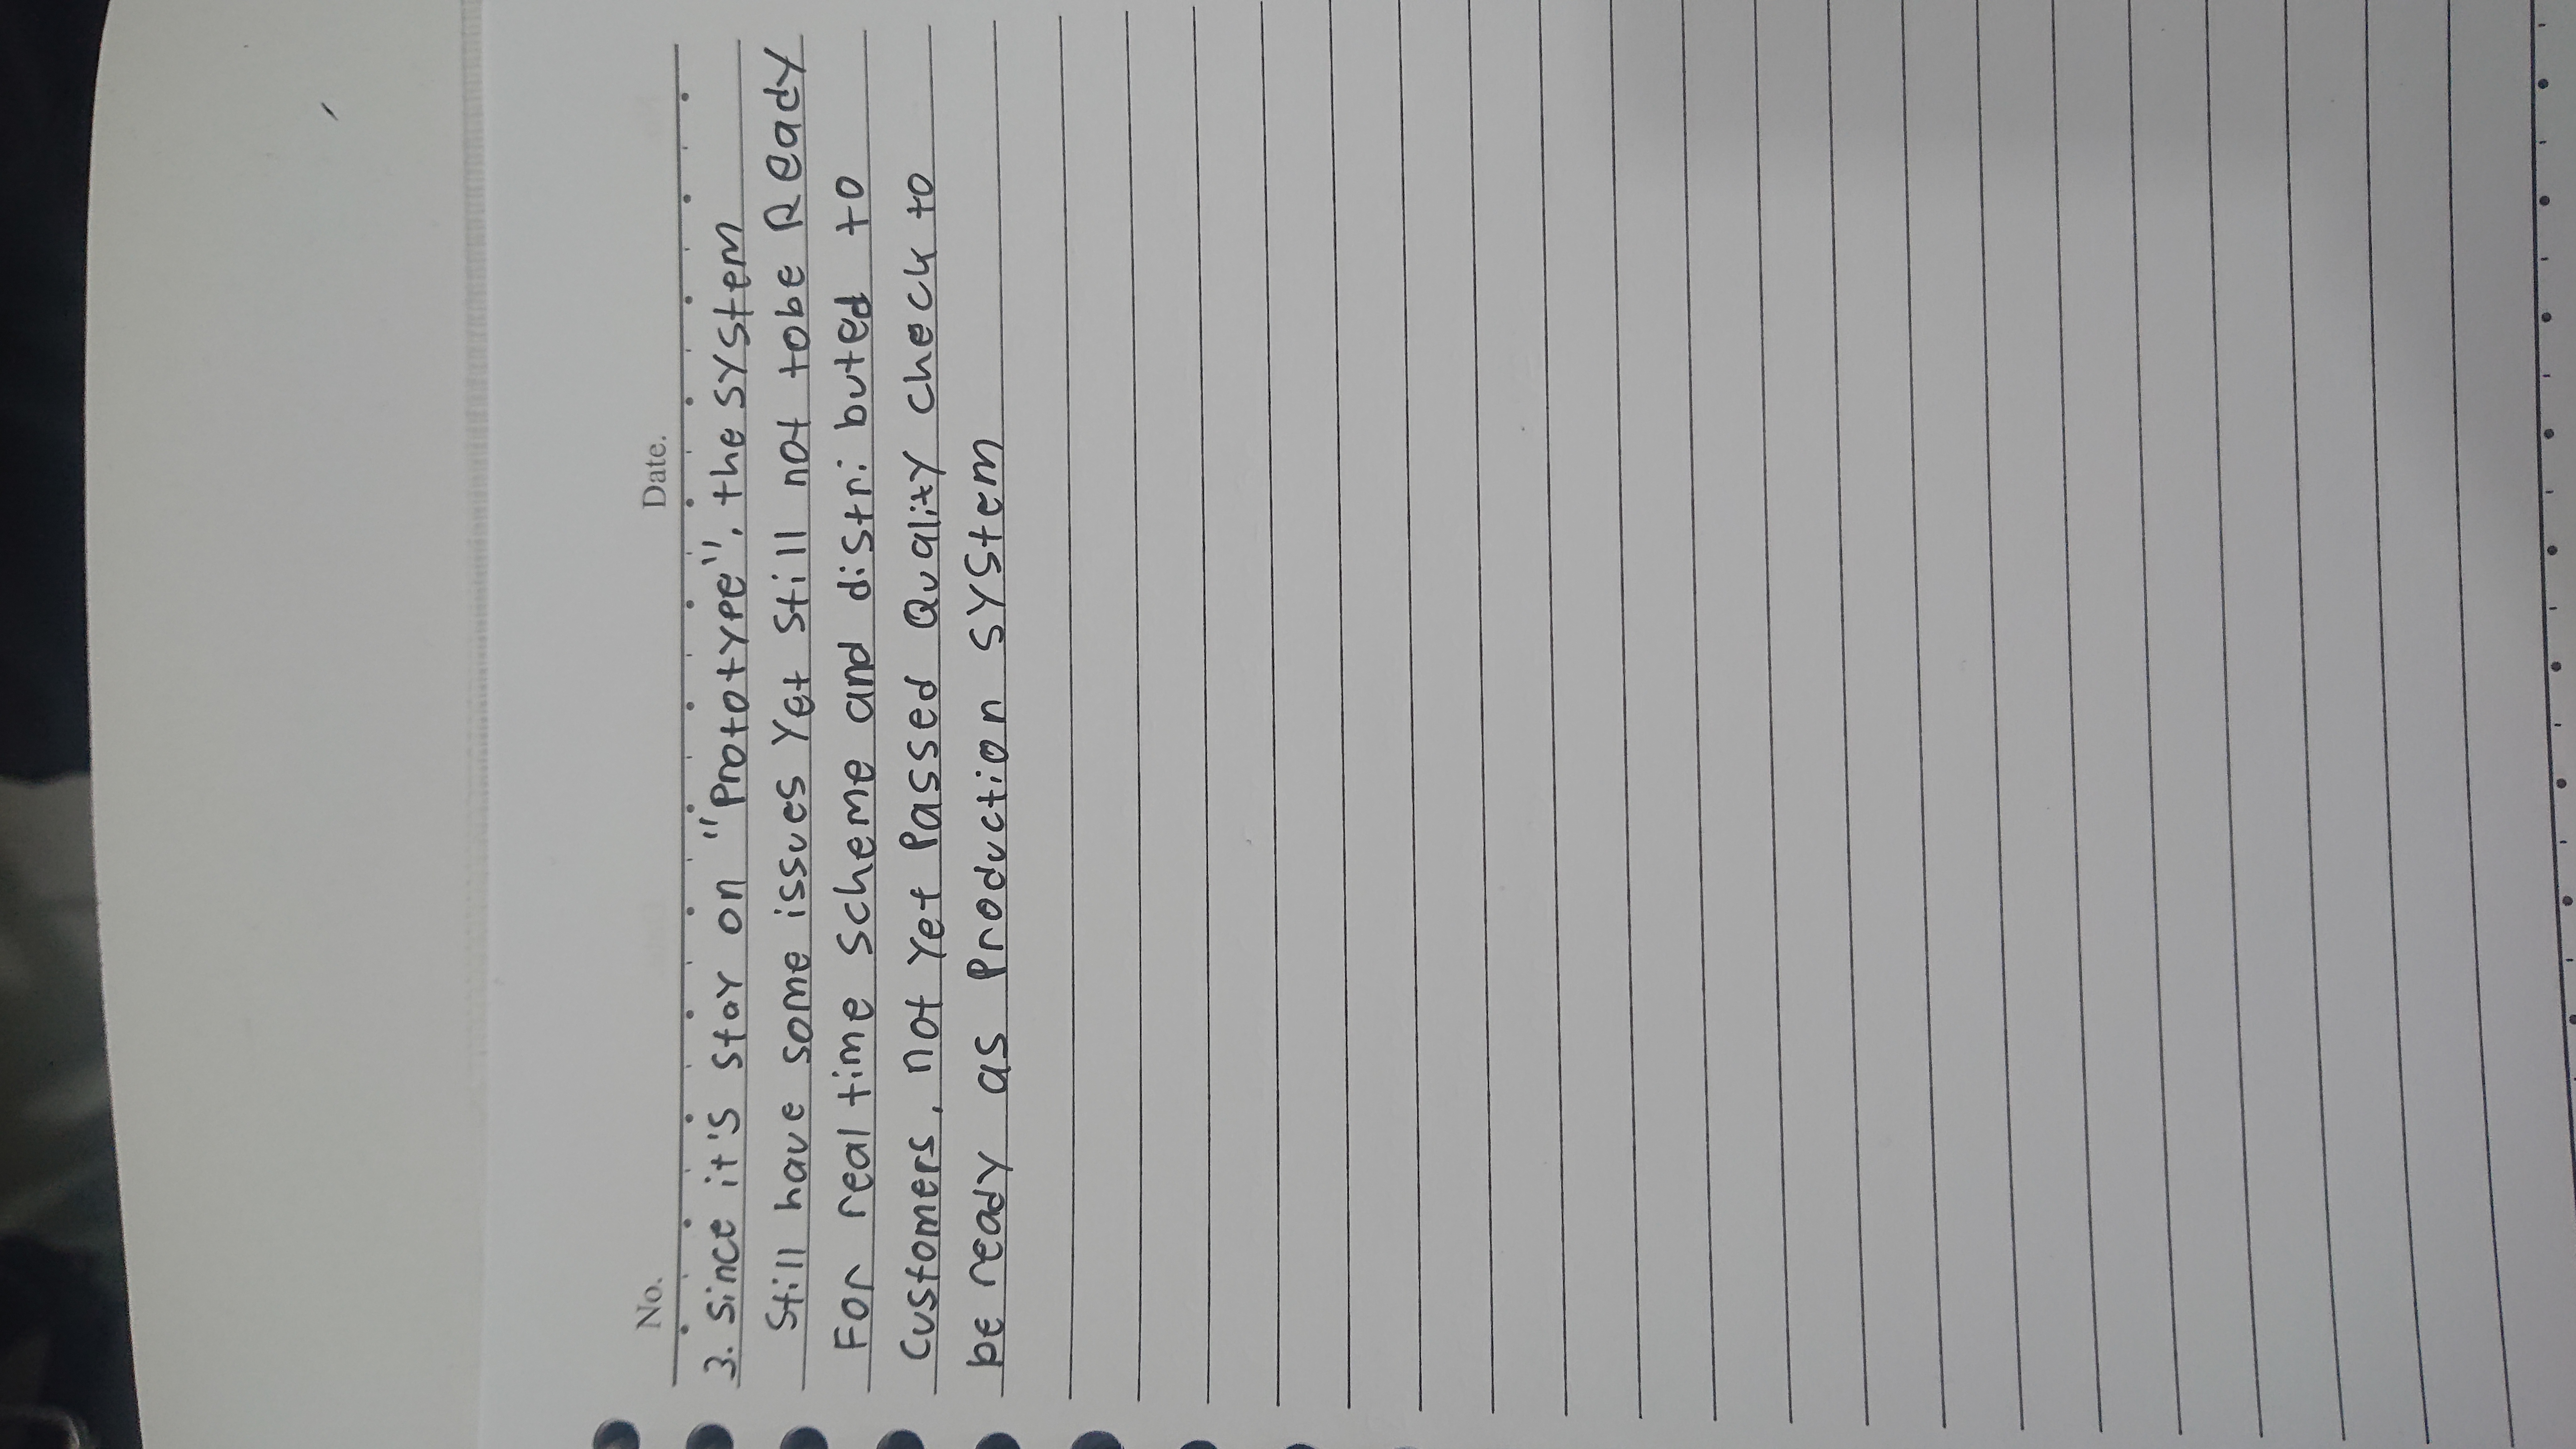 No. Date.
3. Since it's stay on "Prototype", the system
Still have some issues Yet still not tobe Ready
For real time scheme and distributed to
customers, not Yet Passed Quality check to
be ready as Production system